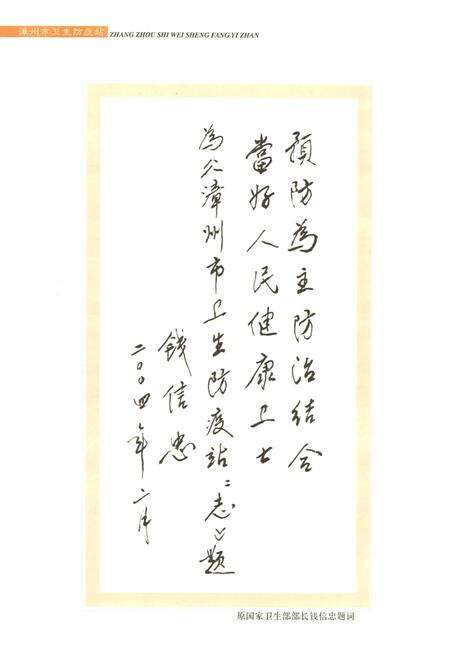 漳州市卫生防疫站 ZHANG ZHOU SHI WEI SHENG FANG YI ZHAN
預防為主防治结合
當好人民健康卫士
為《漳州市卫生防疫站志》题
钱信忠
二〇〇四年二月
原国家卫生部部长钱信忠题词